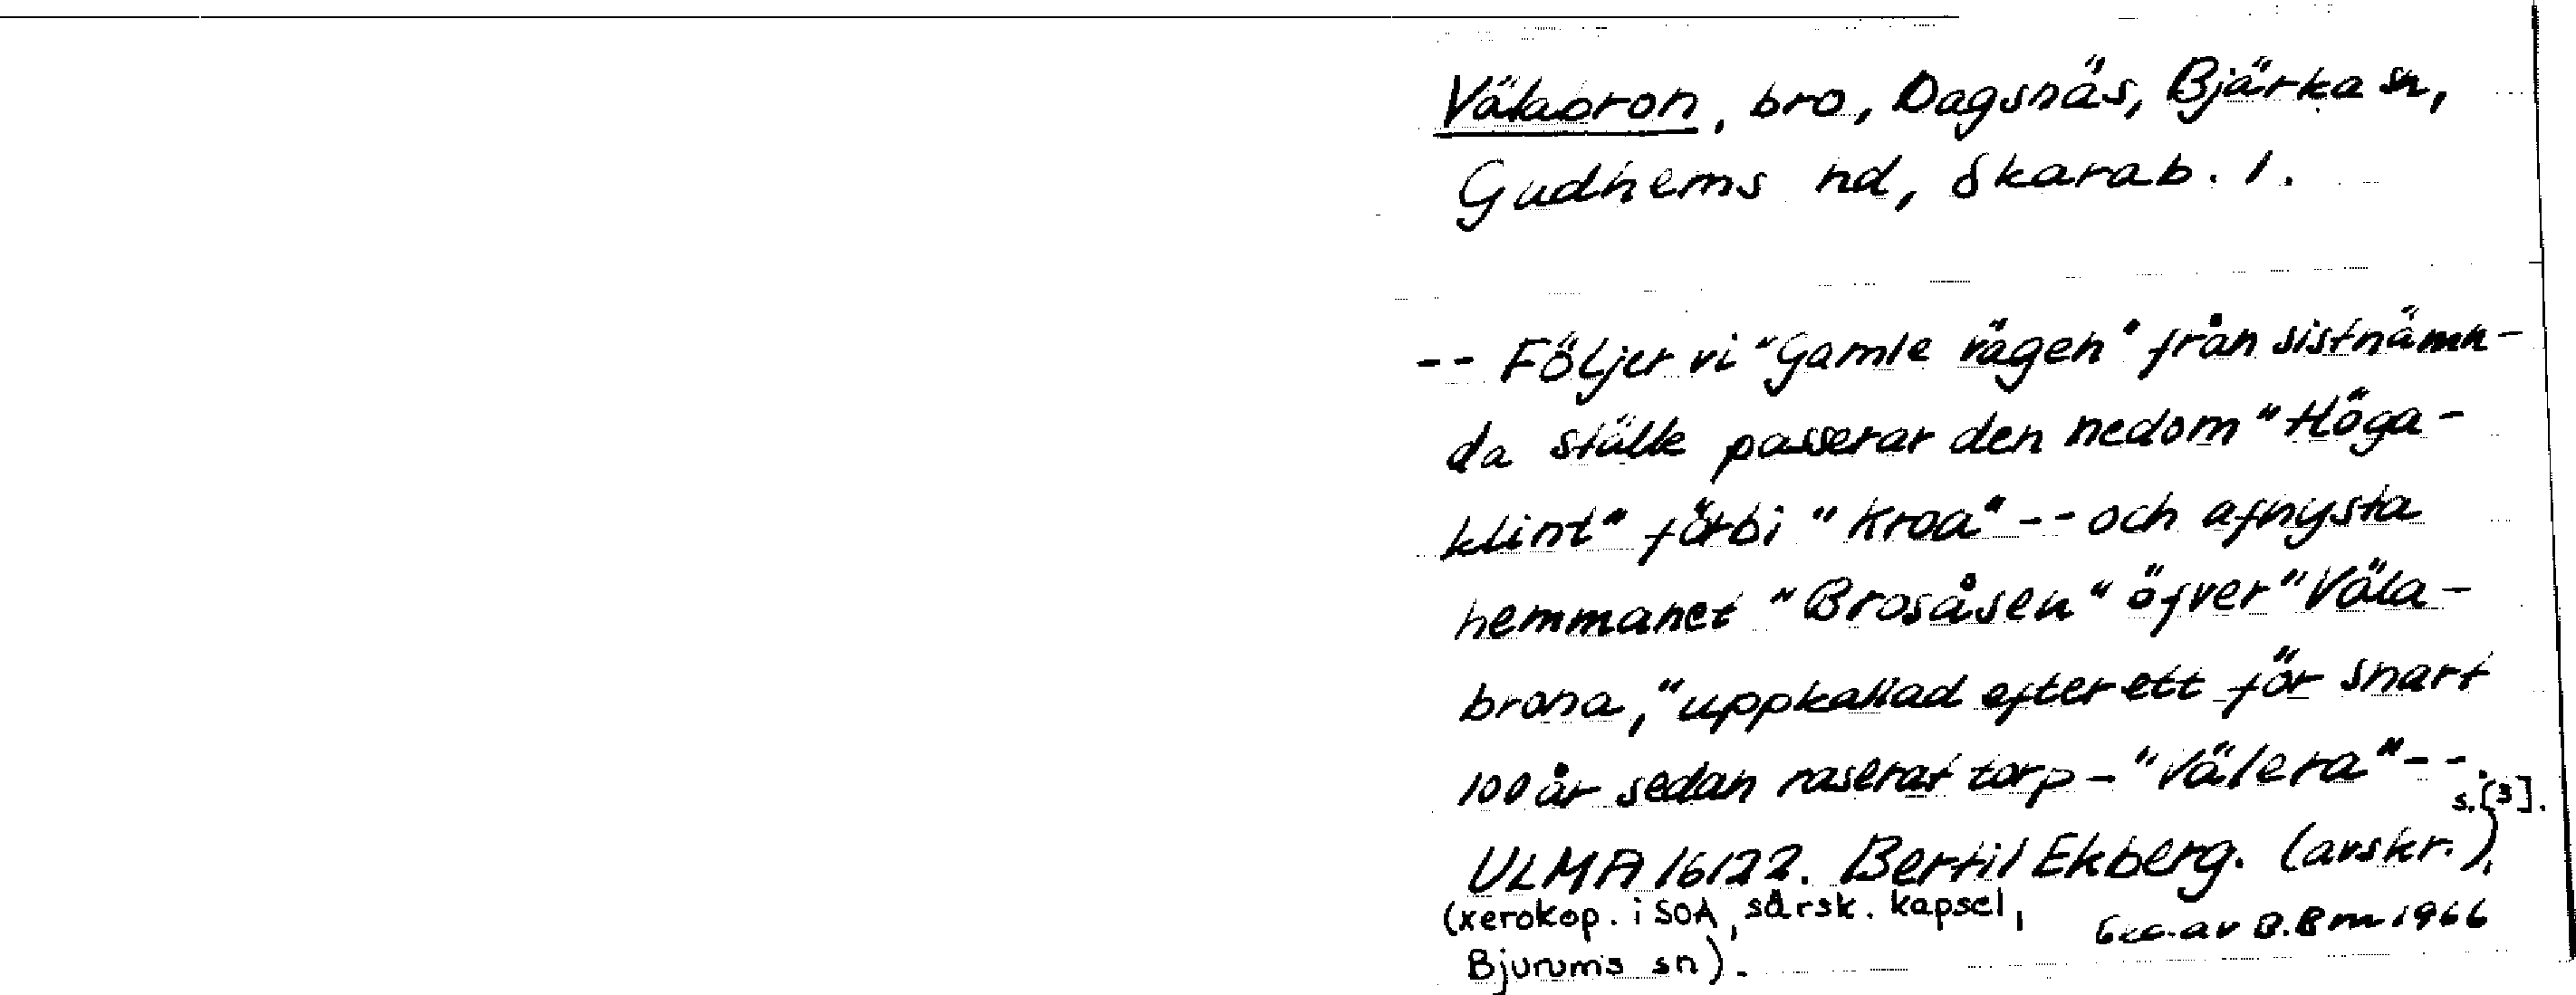 Välabron, bro, Dagsnäs, Bjärka sn,
Gudhems hd, Skarab. l.
-- Följer vi "Gamle vägen" från sistnämn-
da ställe passerar den nedom "Höga-
klint" förbi "Kroa" -- och afhysta
hemmanet "Brosåsen" öfver "Väla-
brona," uppkallad efter ett för snart
100 år sedan raserat torp - "Välera" --.
s. [3].
ULMA 16122. Bertil Ekberg. (avskr.),
(xerokop. i SOA, särsk. kapsel,
Bjurums sn).
av B.Bm 1966